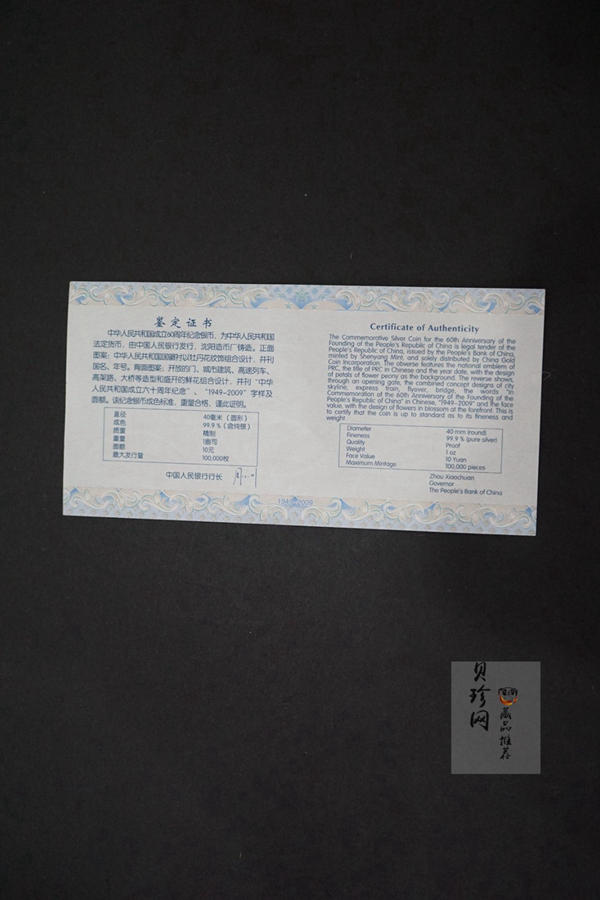 鉴定证书
中华人民共和国成立60周年纪念银币，为中华人民共和国
法定货币，由中国人民银行发行，沈阳造币厂铸造。正面
图案：中华人民共和国国徽衬以牡丹花纹饰组合设计，并刊
国名、年号。背面图案：开放的门、城市建筑、高速列车、
高架路、大桥等造型和盛开的鲜花组合设计，并刊“中华
人民共和国成立六十周年纪念”、“1949-2009”字样及
面额。该纪念银币成色标准，重量合格，谨此证明。
直径 40毫米（圆形）
成色 99.9%（含纯银）
质量 精制
重量 1盎司
面额 10元
最大发行量 100,000枚
中国人民银行行长
Certificate of Authenticity
The Commemorative Silver Coin for the 60th Anniversary of the
Founding of the People's Republic of China is legal tender of the
People's Republic of China, issued by the People's Bank of China,
minted by Shenyang Mint, and solely distributed by China Gold
Coin Incorporation. The obverse features the national emblem of
PRC, the title of PRC in Chinese and the year date, with the design
of petals of flower peony as the background. The reverse shows,
through an opening gate, the combined concept designs of city
skyline, express train, flyover, bridge, the words "in
Commemoration of the 60th Anniversary of the Founding of the
People's Republic of China" in Chinese, "1949-2009" and the face
value, with the design of flowers in blossom at the forefront. This is
to certify that the coin is up to standard as to its fineness and
weight.
Diameter 40 mm (round)
Fineness 99.9 % (pure silver)
Quality Proof
Weight 1 oz
Face Value 10 Yuan
Maximum Mintage 100,000 pieces
Zhou Xiaochuan
Governor
The People's Bank of China
1949-2009
贝珍网
藏品推荐